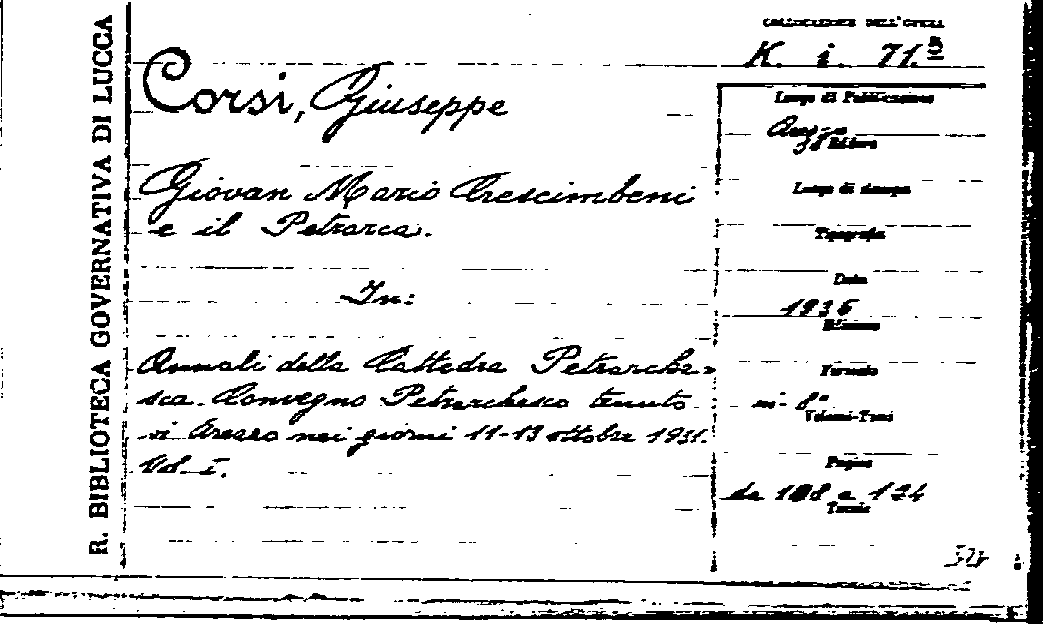 R. BIBLIOTECA GOVERNATIVA DI LUCCA
COLLOCAZIONE DELL'OPERA
K. i. 71.
Corsi, Giuseppe
Giovan Mario Crescimbeni
e il Petrarca.
In:
Annali della Cattedra Petrarche-
sca. Convegno Petrarchesco tenuto
in Arezzo nei giorni 11-13 ottobre 1931.
Vol. I.
Luogo di Pubblicazione
Arezzo
Editore
Luogo di stampa
Tipografia
Data
1936
Edizione
Formato
in-8°
Volumi-Tomi
Pagine
da 108 a 124
Tavole